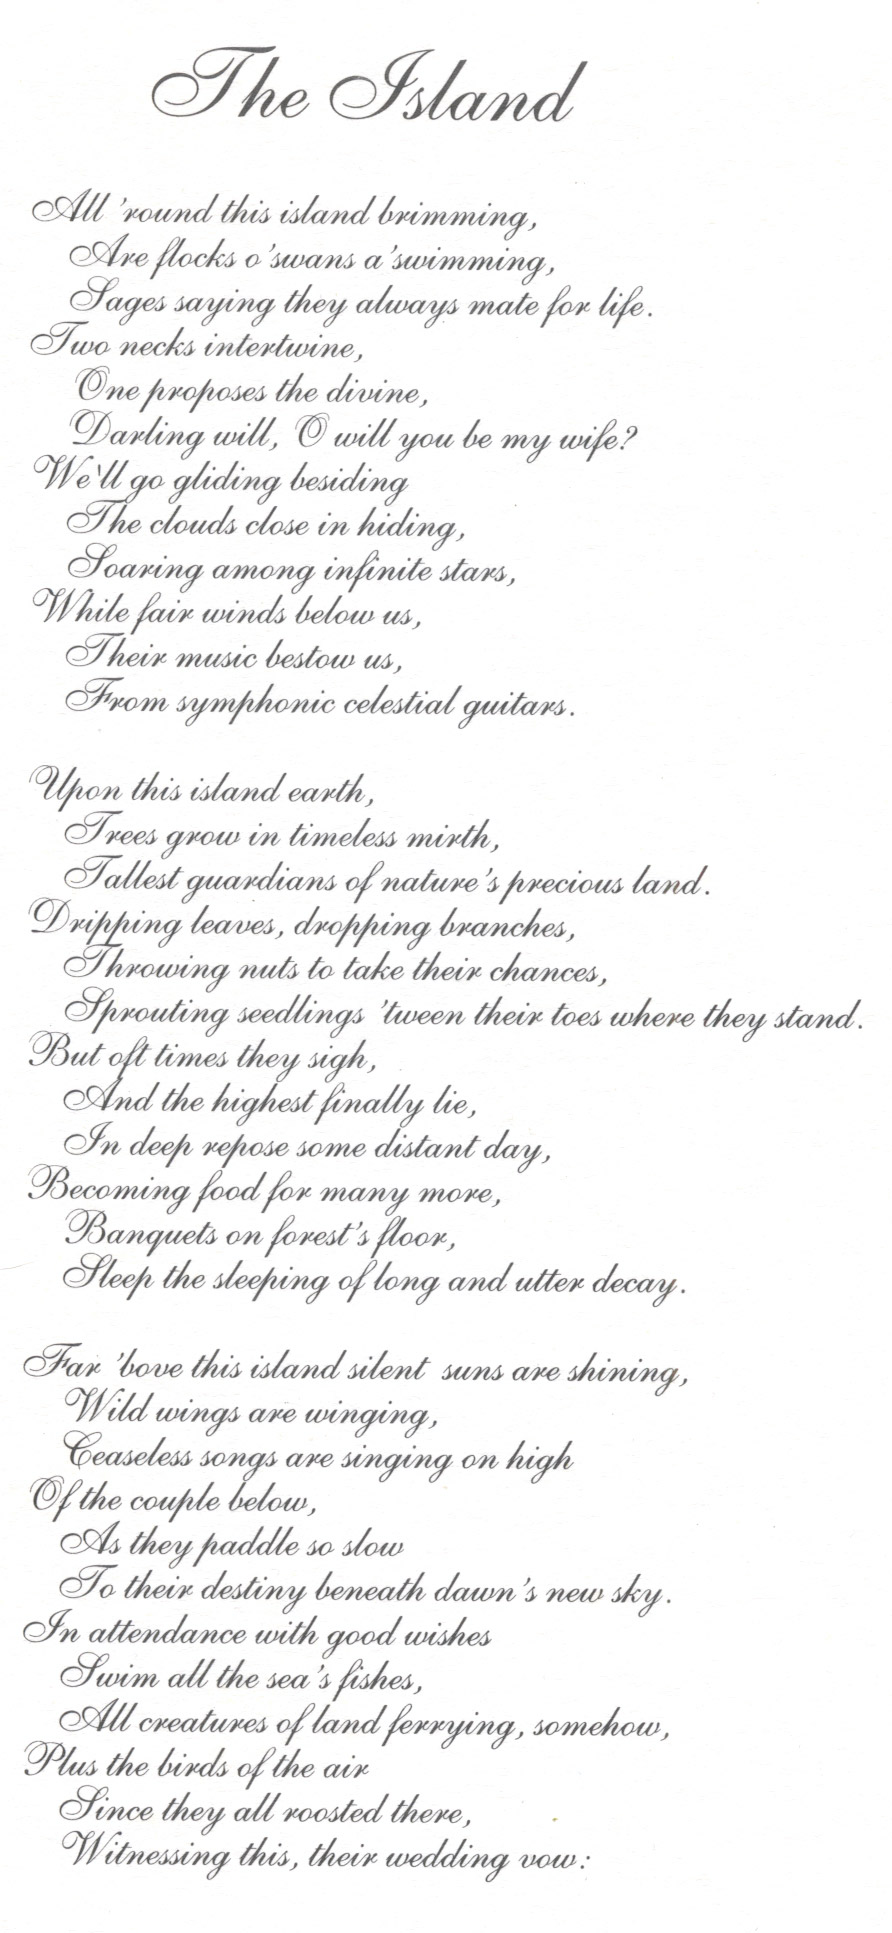 The Island
All 'round this island brimming,
Are flocks o'swans a'swimming,
Sages saying they always mate for life.
Two necks intertwine,
One proposes the divine,
Darling will, O will you be my wife?
We'll go gliding besiding
The clouds close in hiding,
Soaring among infinite stars,
While fair winds below us,
Their music bestow us,
From symphonic celestial guitars.
Upon this island earth,
Trees grow in timeless mirth,
Tallest guardians of nature's precious land.
Dripping leaves, dropping branches,
Throwing nuts to take their chances,
Sprouting seedlings 'tween their toes where they stand.
But oft times they sigh,
And the highest finally lie,
In deep repose some distant day,
Becoming food for many more,
Banquets on forest's floor,
Sleep the sleeping of long and utter decay.
Far 'bove this island silent suns are shining,
Wild wings are winging,
Ceaseless songs are singing on high
Of the couple below,
As they paddle so slow
To their destiny beneath dawn's new sky.
In attendance with good wishes
Swim all the sea's fishes,
All creatures of land ferrying, somehow,
Plus the birds of the air
Since they all roosted there,
Witnessing this, their wedding vow: